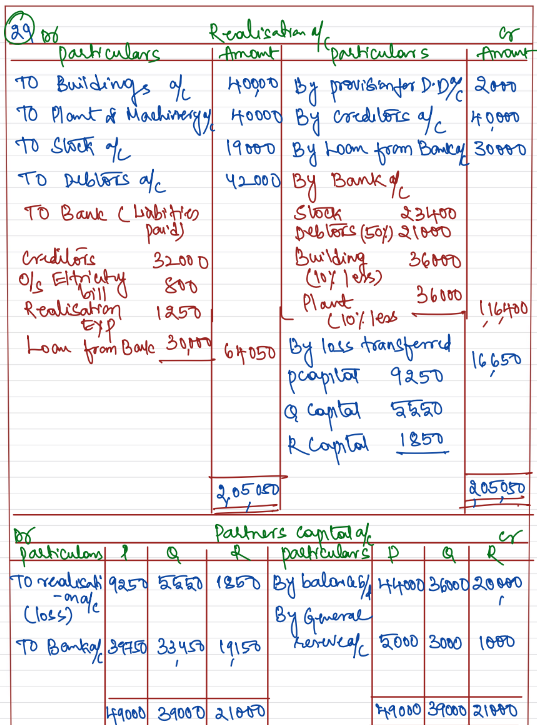 29 Dr Realisation a/c Cr
Particulars Amount Particulars Amount
To Buildings a/c 40,000 By provision for D.D a/c 2000
To Plant & Machinery a/c 40000 By creditors a/c 40,000
To Stock a/c 19000 By Loan from Bank a/c 30000
To Debtors a/c 42000 By Bank a/c
To Bank (Liabilities paid) Stock 23400
Debtors (50%) 21000
Creditors 32000 Building 36000
(10% less)
O/s Eltricity bill 800 Plant 36000 116400
(10% less
Realisation Exp 1250
Loan from Bank 30,000 64050 By loss transferred 16650
P capital 9250
Q Capital 5550
R Capital 1850
2,05,050 205,050
Dr Partners capital a/c Cr
Particulars P Q R particulars P Q R
To realisati 9250 5550 1850 By balance b/d 44000 36000 20000
-on a/c
(loss) By General
To Bank a/c 39750 33450 19150 reserve a/c 5000 3000 1000
49000 39000 21000 49000 39000 21000